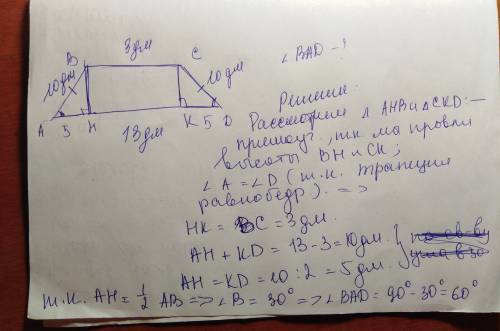 3дм
B C
10дм 10дм
∠BAD - ?
A 5 H K 5 D
13дм
Решение:
Рассмотрим △ AHB и △CKD: —
прямоуг., т.к мы провели
высоты BH и CK;
∠A = ∠D (т.к. трапеция
равнобедр). =>
HK = BC = 3дм.
AH + KD = 13 - 3 = 10дм.
AH = KD = 10 : 2 = 5дм.
т.к. AH = 1/2 AB => ∠B = 30° => ∠BAD = 90° - 30° = 60°